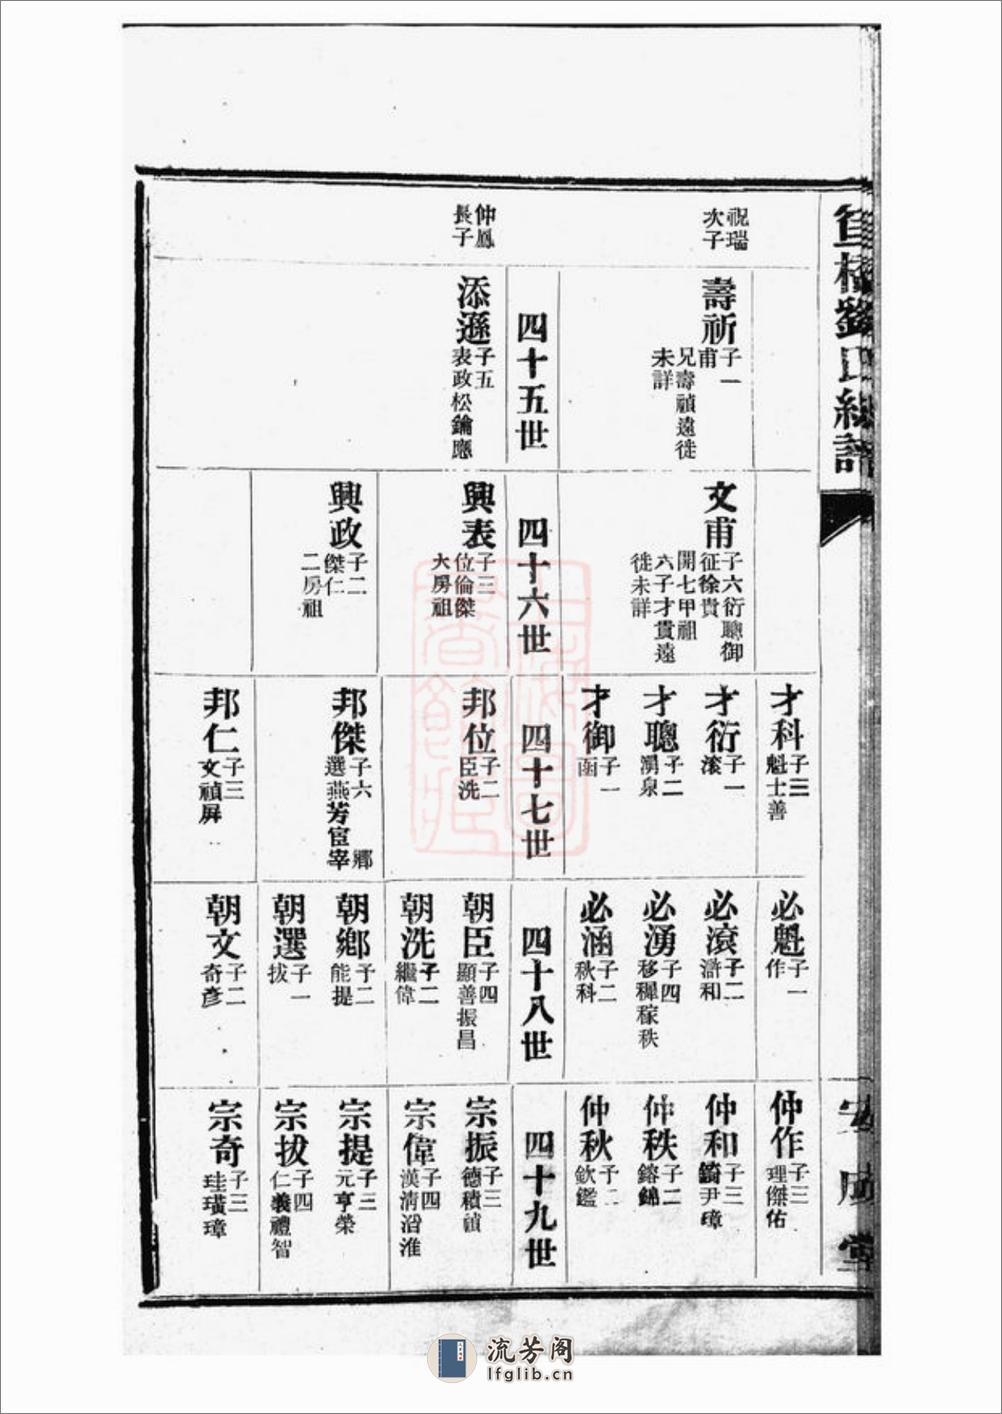 祝瑞
次子
壽祈
子一
甫
兄壽禎遠徙
未詳
文甫
子六衍聰御
征徐貴
開七甲祖
六子才貴遠
徙未詳
才科
子三
魁士善
才衍
子一
滾
才聰
子二
湧泉
才御
子一
函
必魁
子一
作
必滾
子二
滸和
必湧
子四
移穉稼秩
必涵
子二
秋科
仲作
子三
理傑佑
仲和
子三
錡尹璋
仲秩
子二
鎔錦
仲秋
子二
欽鑑
四十五世
四十六世
四十七世
四十八世
四十九世
仲鳳
長子
添遜
子五
表政松鑰應
興表
子三
位倫傑
大房祖
興政
子二
傑仁
二房祖
邦位
子二
臣洗
邦傑
子六 鄉
選燕芳宦宰
邦仁
子三
文禎屏
朝臣
子四
顯善振昌
朝洗
子二
繼偉
朝鄉
子二
能提
朝選
子一
拔
朝文
子二
奇彥
宗振
子三
德積禎
宗偉
子四
漢清滔淮
宗提
子三
元亨榮
宗拔
子四
仁義禮智
宗奇
子三
珪璜璋
流芳阁
lfglib.cn